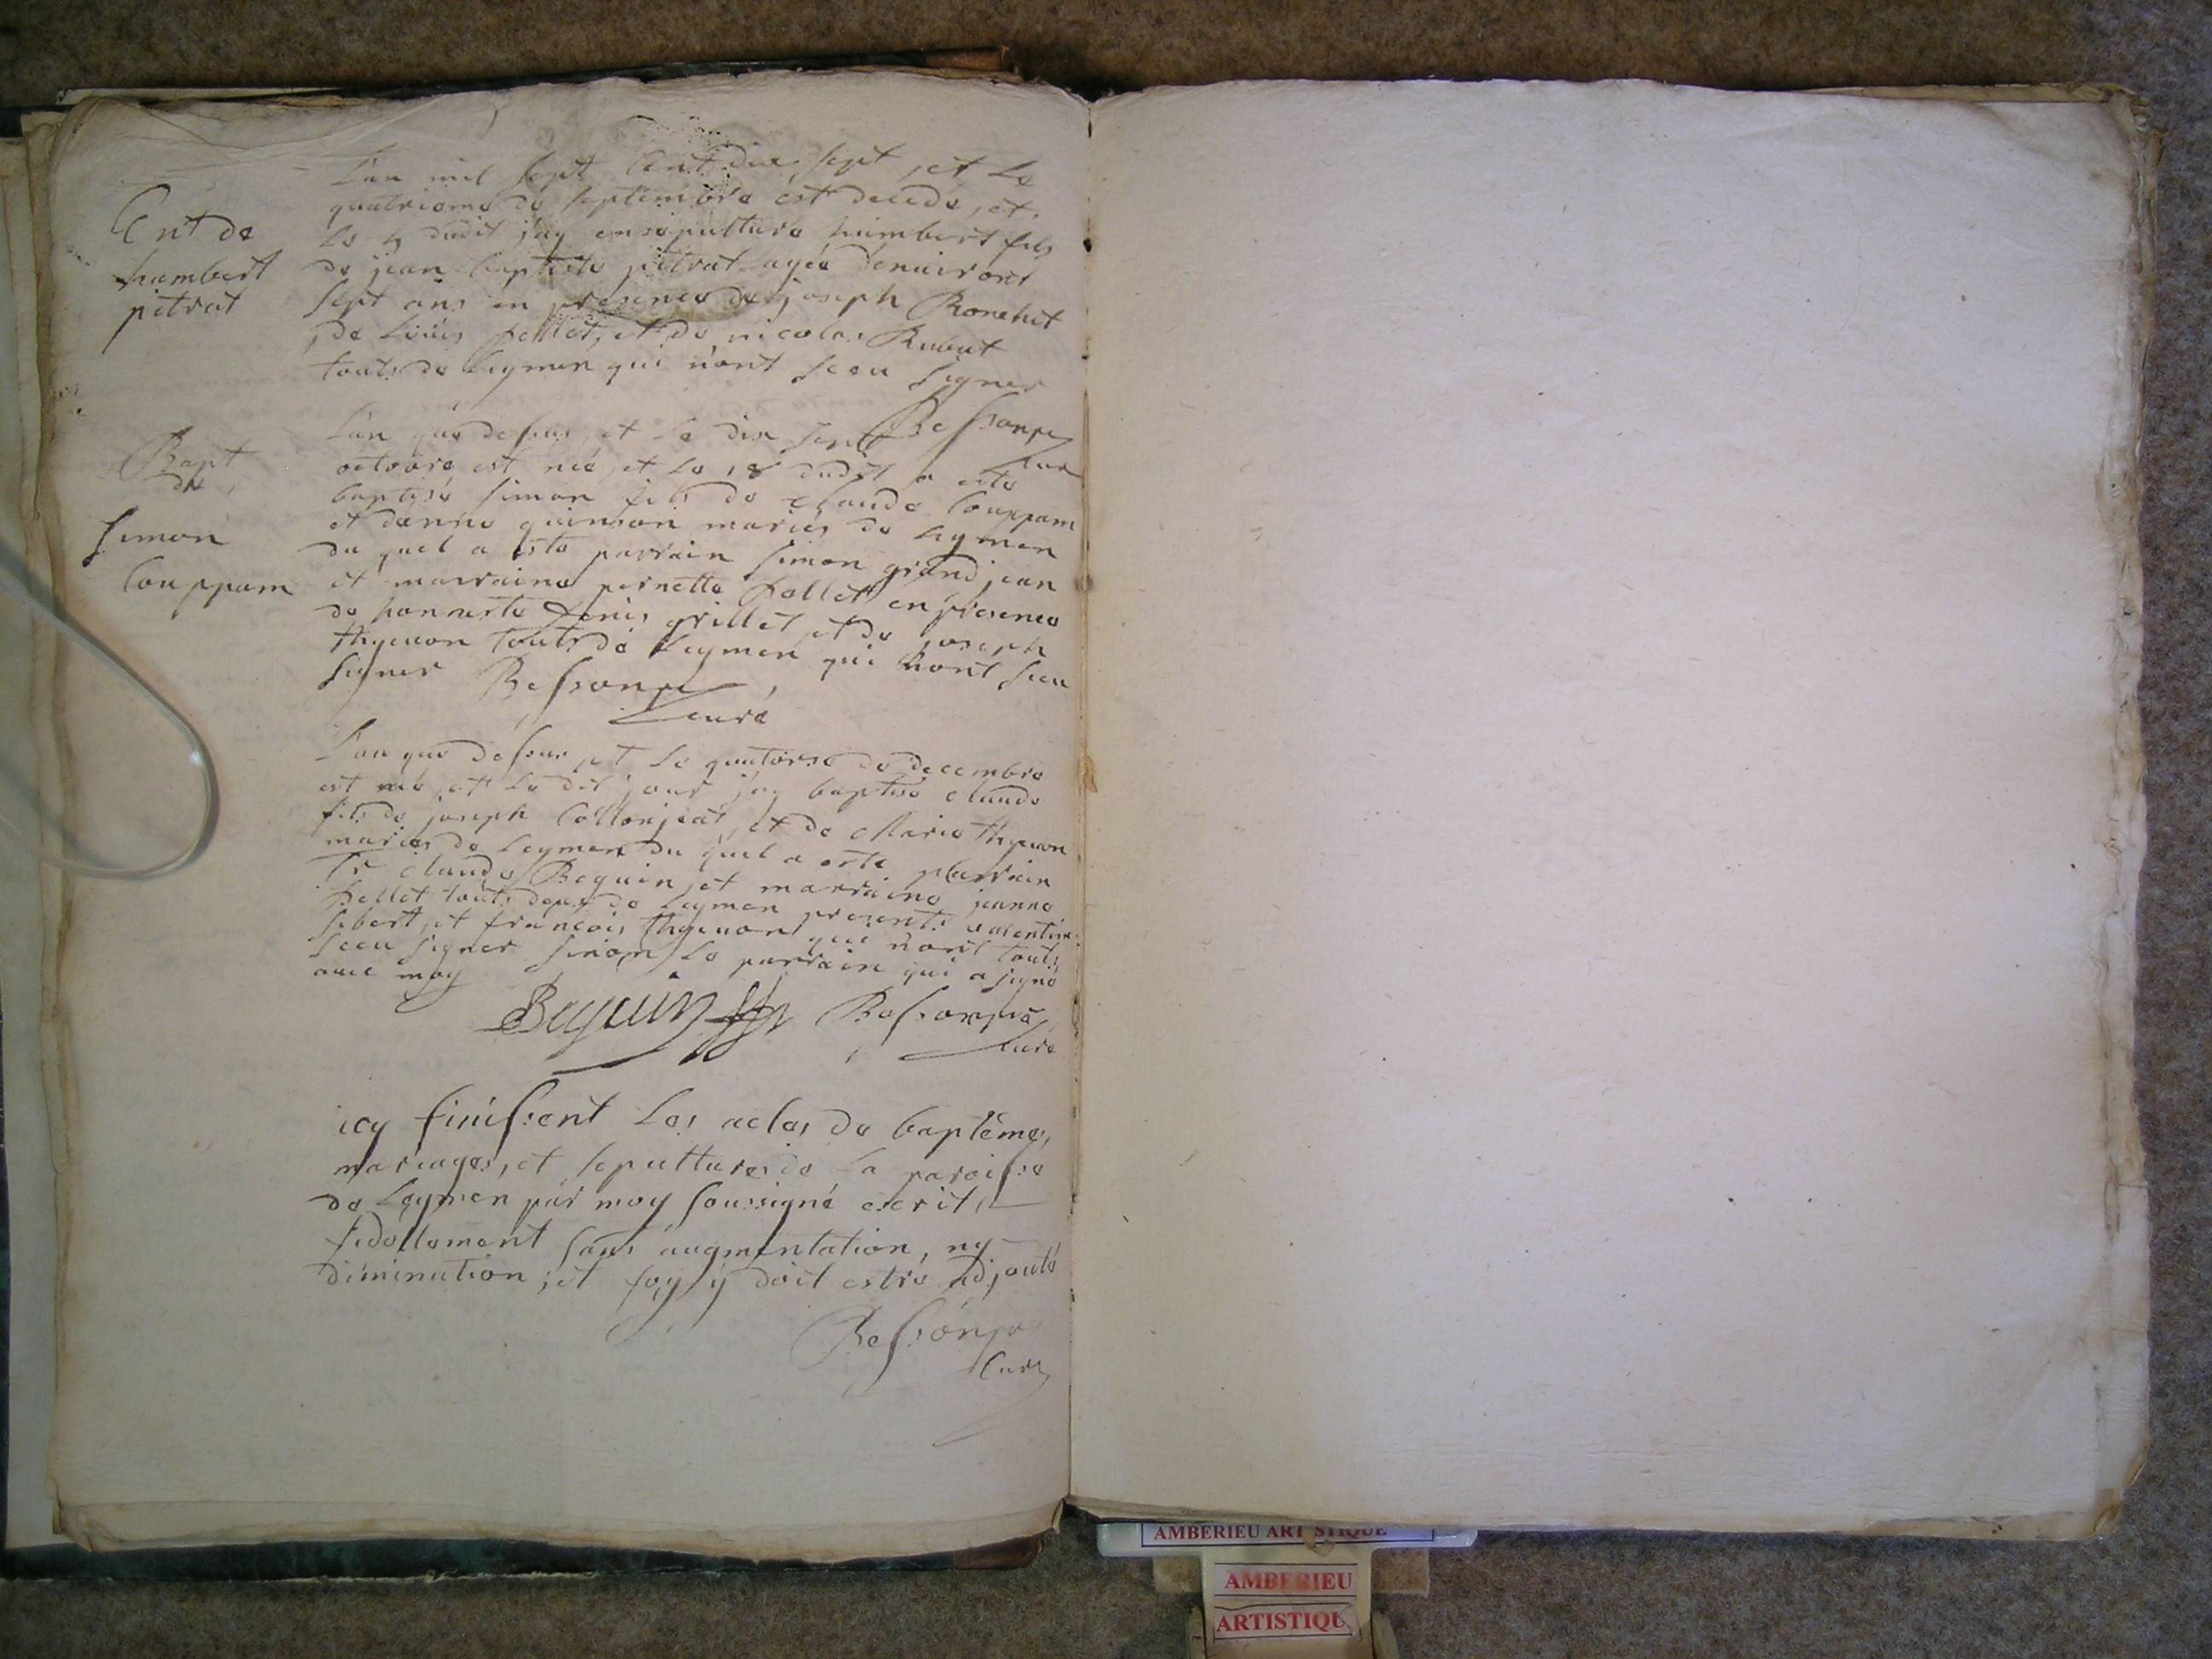 Ent de
humbert
pitrat
L'an mil sept cent dix sept, et le
quatrieme de septembre est decede, et
le 5 dudit j'ay ensepulturé humbert fils
de jean baptiste pitrat agée d'enuiront
sept ans en presence de joseph Ronchet
de Loüis pellet, et de nicolas Rubat
touts de Leymen qui n'ont sceu signer
Bessonne
curé
Bapt
de
simon
Couppam
L'an que dessus, et le dix sept
octobre est née, et le 18 dudit a esté
baptisé simon fils de claude Couppam
et d'enne quinson mariés de Leymen
du quel a esté parrain simon grandjean
et marraine pernette pellet en presence
de honneste denis grillet, et de joseph
thyeuon touts de Leymen qui n'ont sceu
signer Bessonne
curé
L'an que dessus, et le quatorse de decembre
est née, et le dit jour j'ay baptisé claude
fils de joseph Collonjeat, et de Marie thyeuon
mariés de Leymen du quel a esté parrain
Sr claude Beguin, et marraine jeanne
pellet touts deux de Leymen presents valentin
sibert, et francois thyeuon qui n'ont touts
sceu signer sinon le parrain qui a signé
auec moy
Beguin Bessonne
curé
icy finissent Les actes de baptême,
mariages, et sepultures de La paroisse
de Leymen par moy soussigné escrit
fidellement sans augmentation, ny
diminution; et foy y doit estre adjouté
Bessonne
Curé
AMBERIEU ARTISTIQUE
AMBERIEU
ARTISTIQU